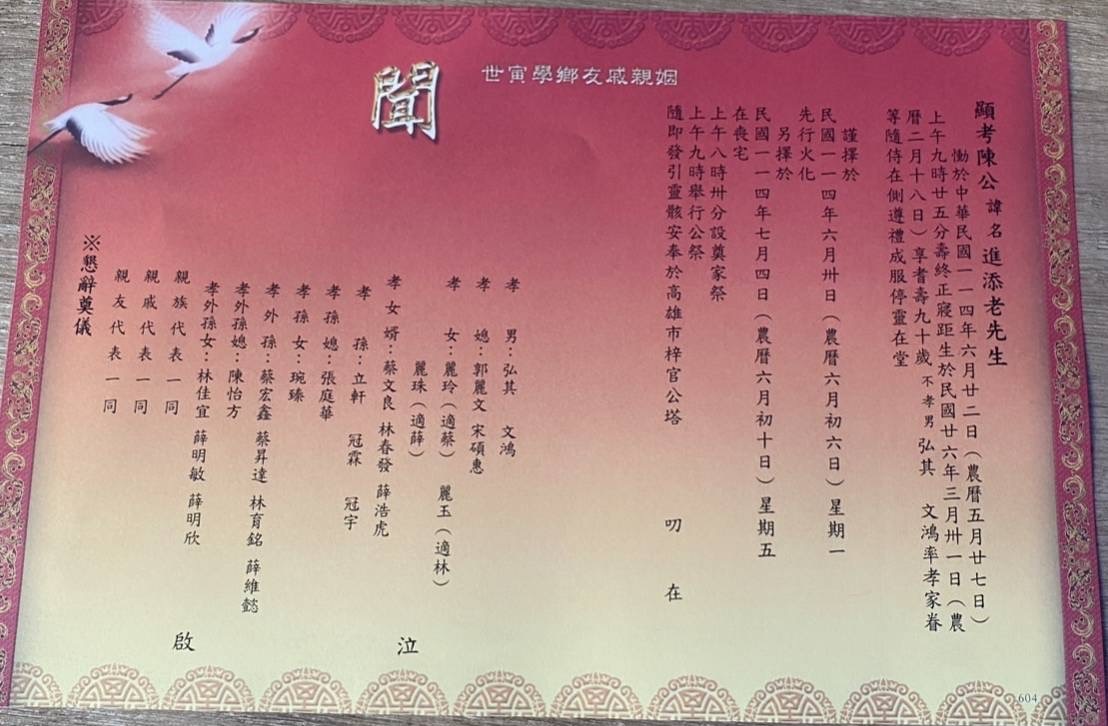 顯考陳公諱名進添老先生
慟於中華民國一一四年六月廿二日（農曆五月廿七日）
上午九時廿五分壽終正寢距生於民國廿六年三月卅一日（農
曆二月十八日）享耆壽九十歲不孝男弘其 文鴻率孝家眷
等隨侍在側遵禮成服停靈在堂
謹擇於
民國一一四年六月卅日（農曆六月初六日）星期一
先行火化
另擇於
民國一一四年七月四日（農曆六月初十日）星期五
在喪宅
上午八時卅分設奠家祭
上午九時舉行公祭
隨即發引靈骸安奉於高雄市梓官公塔 叨在
姻親戚友鄉學寅世
聞
孝男：弘其 文鴻
孝媳：郭麗文 宋碩惠
孝女：麗玲（適蔡） 麗玉（適林）
麗珠（適薛）
孝女婿：蔡文良 林春發 薛浩虎
孝孫：立軒 冠霖 冠宇
孝孫媳：張庭華
孝孫女：琬臻
孝外孫：蔡宏鑫 蔡昇達 林育銘 薛維懿
孝外孫媳：陳怡方
孝外孫女：林佳宜 薛明敏 薛明欣
泣
親族代表一同
親戚代表一同
親友代表一同
啟
※懇辭奠儀
604